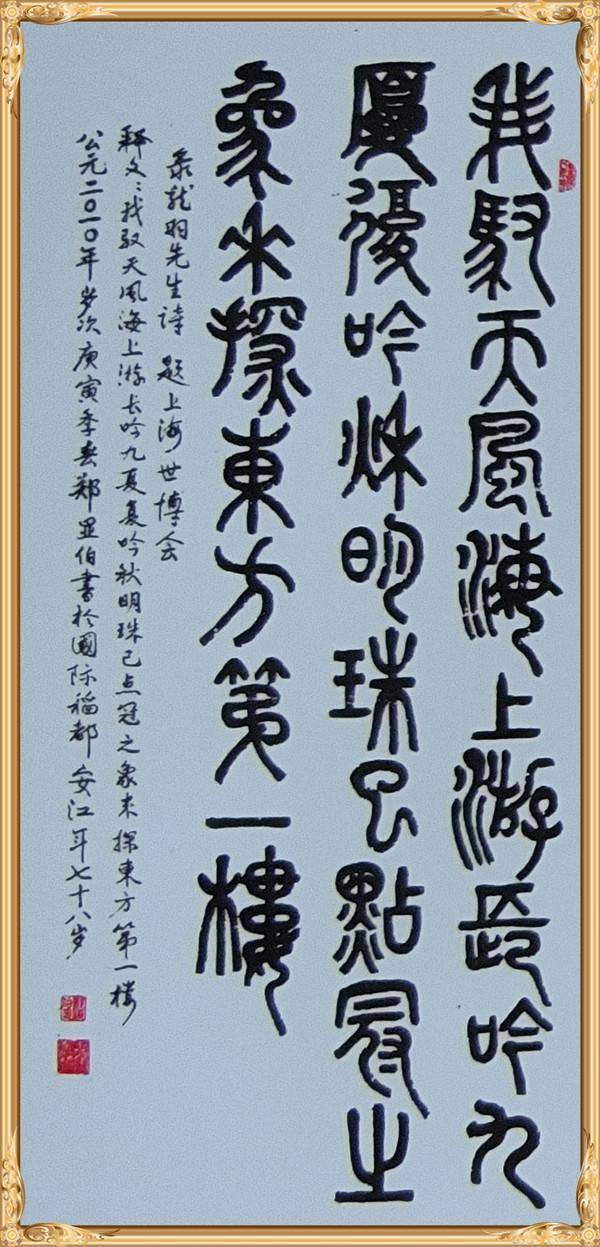 我馭天風海上游長吟九
夏復吟秋明珠已點冠之
象來探東方第一樓
录龙羽先生詩 题上海世博会
释文:我驭天风海上游长吟九夏复吟秋明珠已点冠之象来探東方第一楼
公元二〇一〇年岁次庚寅季春郑显伯書於國际稻都安江年七十八岁